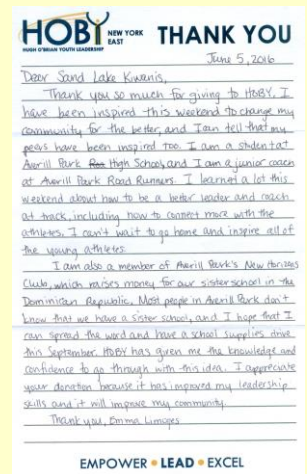 HOBY NEW YORK EAST THANK YOU
HUGH O'BRIAN YOUTH LEADERSHIP
June 5, 2016
Dear Sand Lake Kiwanis,
Thank you so much for giving to HOBY. I
have been inspired this weekend to change my
community for the better, and I can tell that my
peers have been inspired too. I am a student at
Averill Park High School, and I am a junior coach
at Averill Park Road Runners. I learned a lot this
weekend about how to be a better leader and coach
at track, including how to connect more with the
athletes. I can't wait to go home and inspire all of
the young athletes.
I am also a member of Averill Park's New Horizons
Club, which raises money for our sister school in the
Dominican Republic. Most people in Averill Park don't
know that we have a sister school, and I hope that I
can spread the word and have a school supplies drive
this September. HOBY has given me the knowledge and
confidence to go through with this idea. I appreciate
your donation because it has improved my leadership
skills and it will improve my community.
Thank you, Emma Limoges
EMPOWER • LEAD • EXCEL